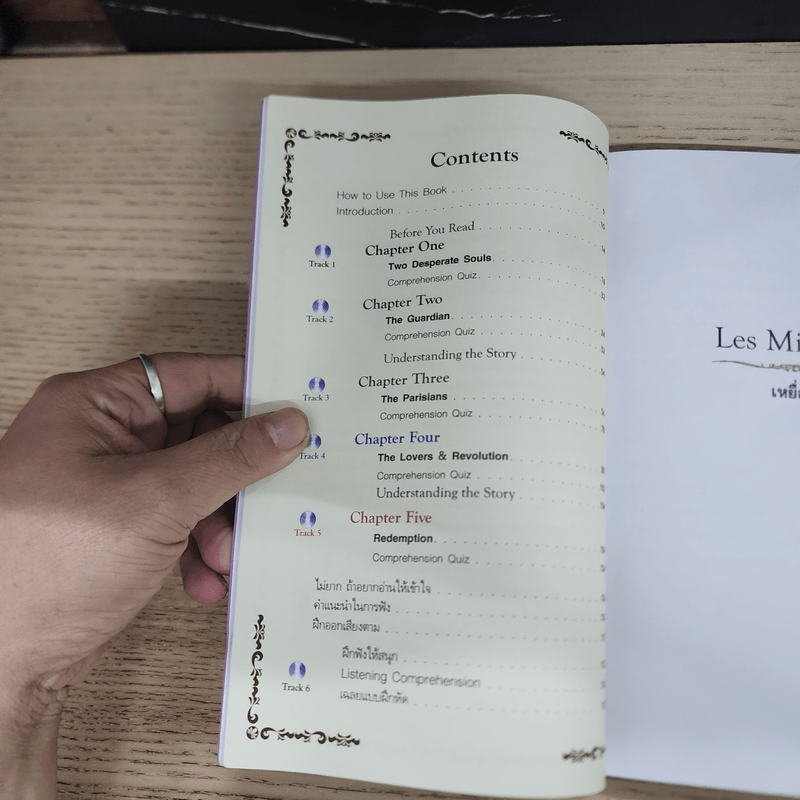 Contents
How to Use This Book
Introduction
Before You Read
Track 1
Chapter One
Two Desperate Souls
Comprehension Quiz
Track 2
Chapter Two
The Guardian
Comprehension Quiz
Understanding the Story
Track 3
Chapter Three
The Parisians
Comprehension Quiz
Track 4
Chapter Four
The Lovers & Revolution
Comprehension Quiz
Understanding the Story
Track 5
Chapter Five
Redemption
Comprehension Quiz
ไม่ยาก ถ้าอยากอ่านให้เข้าใจ
คำแนะนำในการฟัง
ฝึกออกเสียงตาม
ฝึกฟังให้สนุก
Track 6
Listening Comprehension
เฉลยแบบฝึกหัด
Les Mi
เหยื่อ